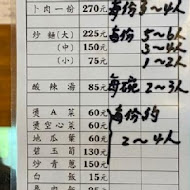 卜肉一份 270元 每份3~4人
炒麵(大) 225元 每份5~6人
(中) 150元 3~4人
(小) 75元 1~2人
酸辣海 85元 每碗2~3人
燙A菜 60元 每份約
燙空心菜 60元
地瓜葉 60元 2~4人
碧玉筍 130元
炒青蔥 150元
白飯 15元